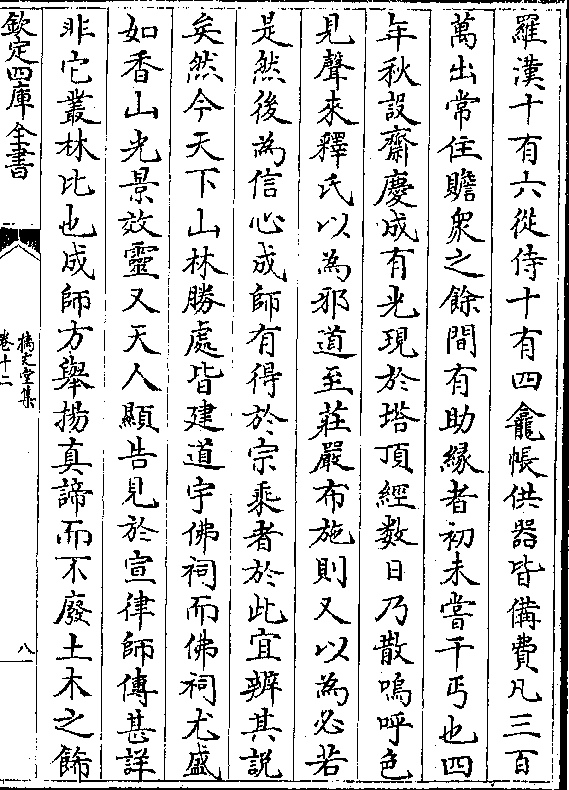 羅漢十有六從侍十有四龕帳供器皆備費凡三百
萬出常住贍衆之餘間有助縁者初未嘗干丐也四
年秋設齋慶成有光現於塔頂經数日乃散嗚呼色
見聲來釋氏以為邪道至莊嚴布施則又以為必若
是然後為信心成師有得於宗乘者於此宜辨其説
矣然今天下山林勝處皆建道宇佛祠而佛祠尤盛
如香山光景效靈又天人顯告見於宣律師傳甚詳
非它叢林比也成師方舉揚真諦而不廢土木之餙
欽定四庫全書
摛文堂集
卷十二
八